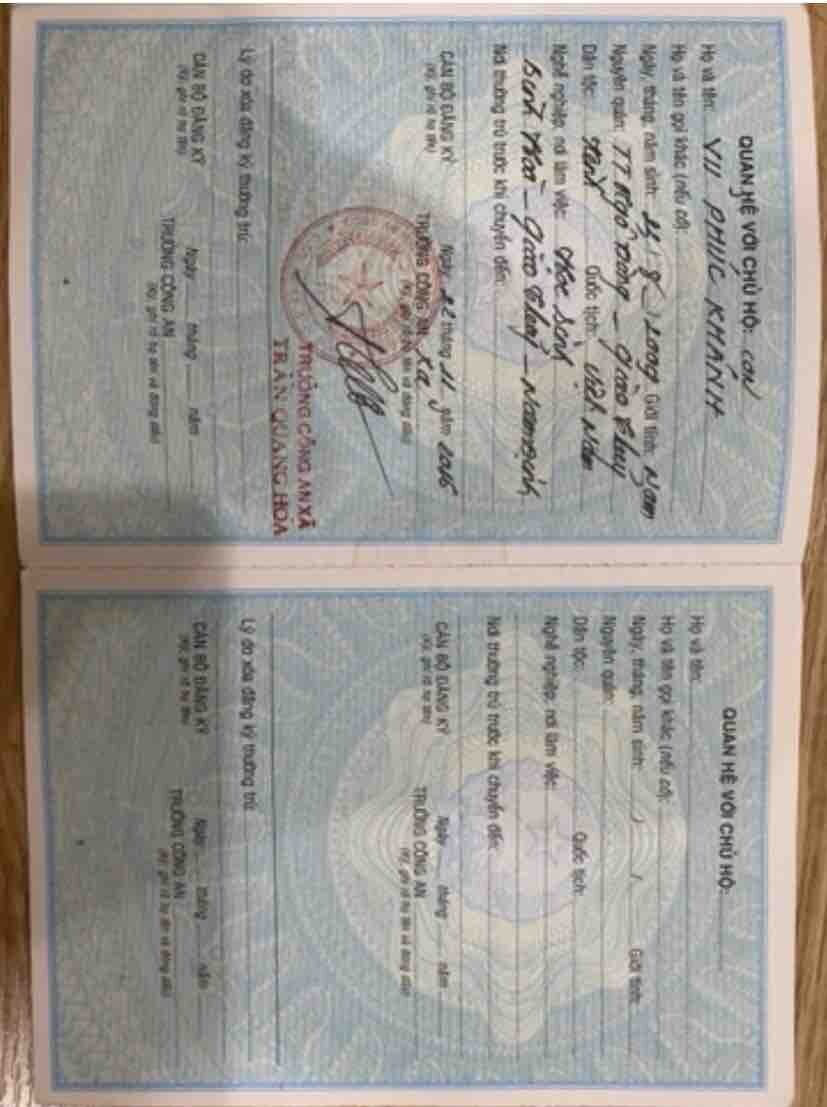 QUAN HỆ VỚI CHỦ HỘ: con
Họ và tên: VŨ PHÚC KHÁNH
Họ và tên gọi khác (nếu có):
Ngày, tháng, năm sinh: Giới tính: Nam
Nguyên quán: TT Ngô Đồng - Giao Thủy
Dân tộc: Kinh Quốc tịch: Việt Nam
Nghề nghiệp, nơi làm việc: Học sinh
Nơi thường trú trước khi chuyển đến:
- Giao Thủy - Nam Định
Ngày 22 tháng 11 năm
CÁN BỘ ĐĂNG KÝ TRƯỞNG CÔNG AN xã
(Ký, ghi rõ họ tên) (Ký, ghi rõ họ tên và đóng dấu)
TRƯỞNG CÔNG AN XÃ
TRẦN QUANG HÒA
Lý do xóa đăng ký thường trú:
Ngày tháng năm
CÁN BỘ ĐĂNG KÝ TRƯỞNG CÔNG AN
(Ký, ghi rõ họ tên) (Ký, ghi rõ họ tên và đóng dấu)
QUAN HỆ VỚI CHỦ HỘ:
Họ và tên:
Họ và tên gọi khác (nếu có):
Ngày, tháng, năm sinh: / / Giới tính:
Nguyên quán:
Dân tộc: Quốc tịch:
Nghề nghiệp, nơi làm việc:
Nơi thường trú trước khi chuyển đến:
Ngày tháng năm
CÁN BỘ ĐĂNG KÝ TRƯỞNG CÔNG AN
(Ký, ghi rõ họ tên) (Ký, ghi rõ họ tên và đóng dấu)
Lý do xóa đăng ký thường trú:
Ngày tháng năm
CÁN BỘ ĐĂNG KÝ TRƯỞNG CÔNG AN
(Ký, ghi rõ họ tên) (Ký, ghi rõ họ tên và đóng dấu)